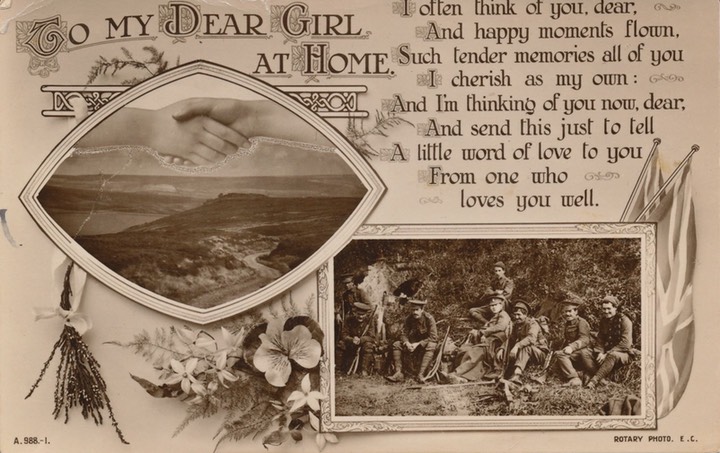 To My Dear Girl
at Home.
I often think of you, dear,
And happy moments flown,
Such tender memories all of you
I cherish as my own:
And I'm thinking of you now, dear,
And send this just to tell
A little word of love to you
From one who
loves you well.
A.988.-1.
ROTARY PHOTO. E.C.